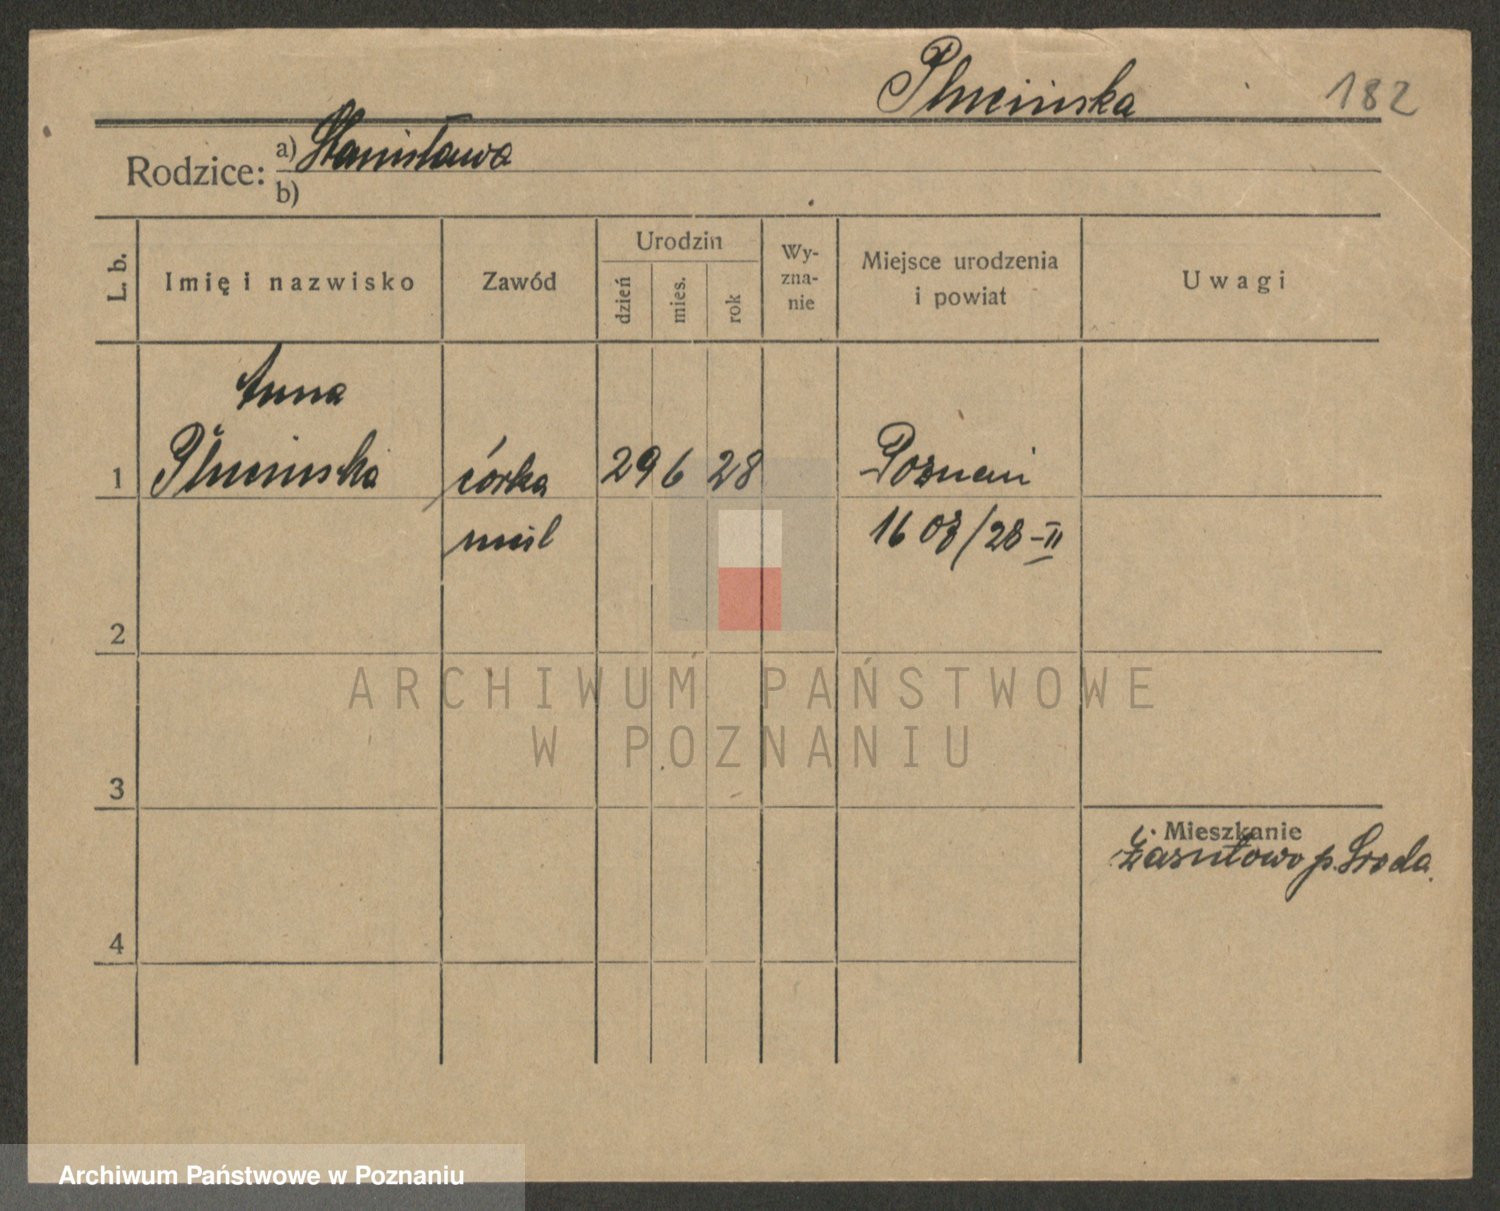 Plucińska 182
Rodzice: a) Stanisława
b)
L. b. Imię i nazwisko Zawód Urodzin dzień mies. rok Wy-zna-nie Miejsce urodzenia i powiat Uwagi
Anna
1 Plucińska córka 29 6 28 Poznań
nieśl 16 03/28-II
2
3
Mieszkanie
p. Środa.
4
ARCHIWUM PAŃSTWOWE
W POZNANIU
Archiwum Państwowe w Poznaniu